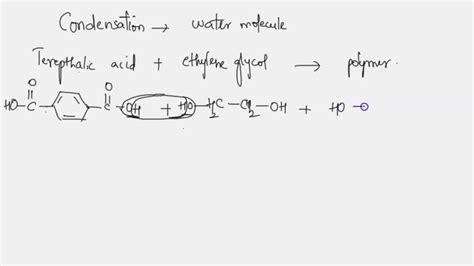 Condensation → water molecule
Terepthalic acid + ethylene glycol → polymer.
HO-C(=O)-⌬-C(=O)-OH + HO-H2C-CH2-OH + HO-